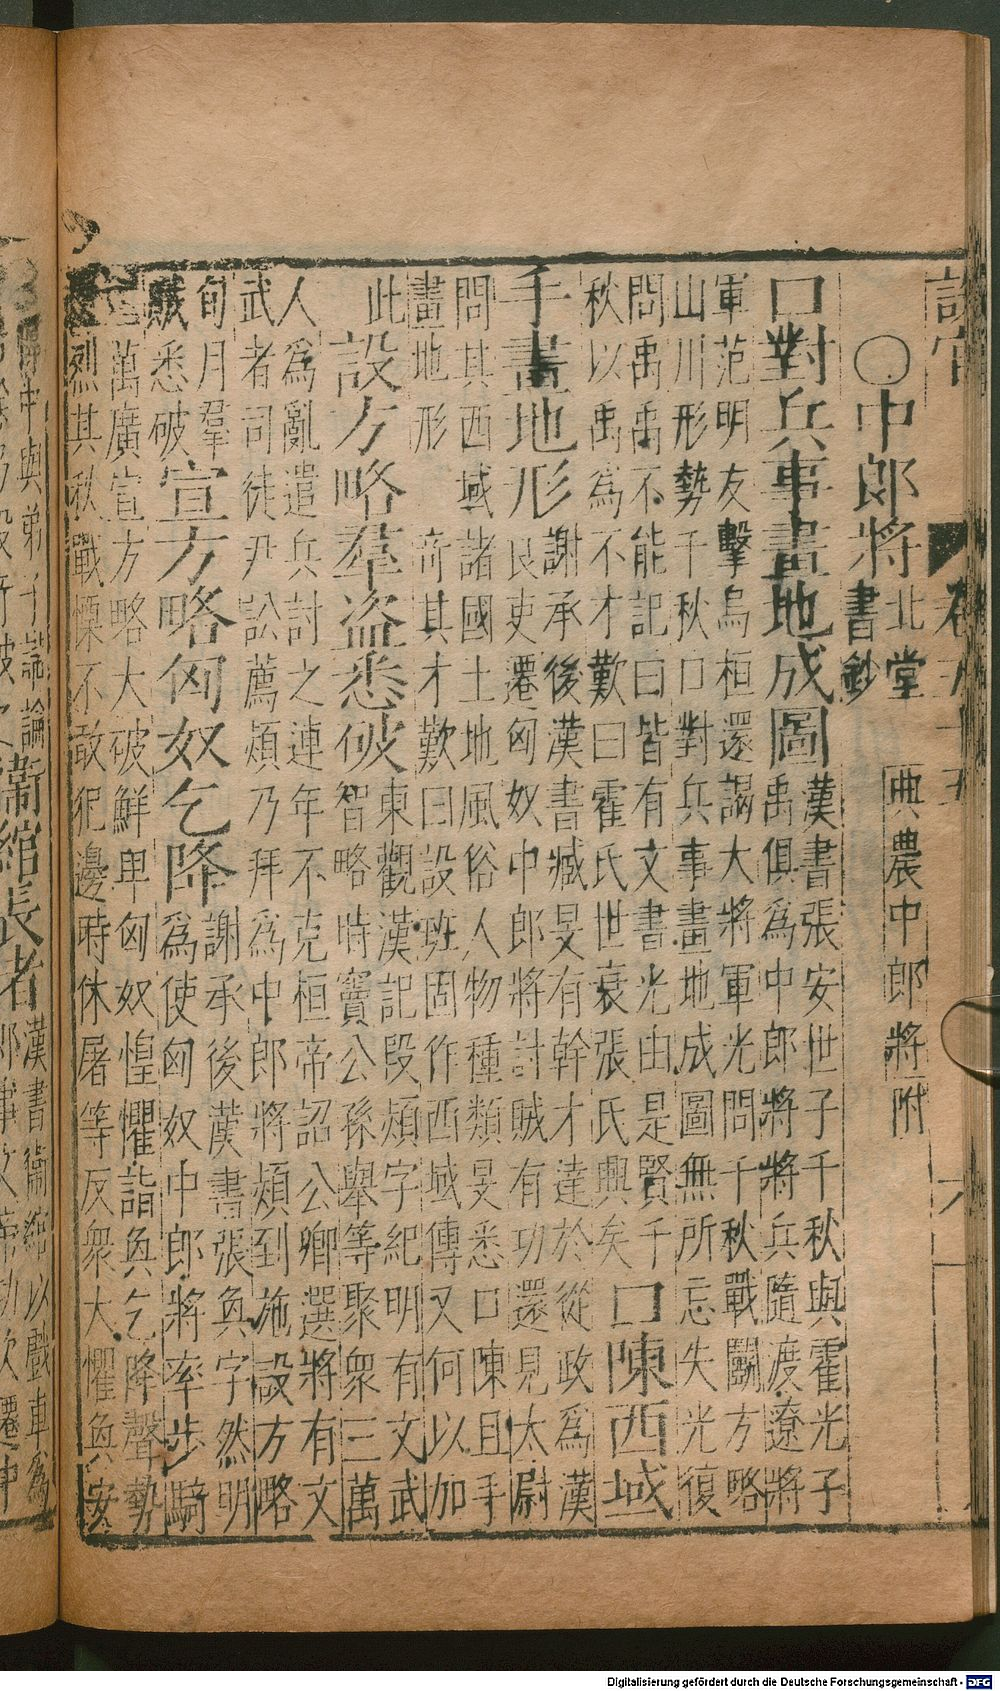 設官 卷五十五 六
○中郎將 北堂
書鈔 典農中郎將附
口對兵事畫地成圖 漢書張安世子千秋與霍光子
禹俱為中郎將將兵隨渡遼將
軍范明友擊烏桓還謁大將軍光問千秋戰鬪方略
山川形勢千秋口對兵事畫地成圖無所忘失光復
問禹禹不能記曰皆有文書光由是賢千
秋以禹為不才歎曰霍氏世衰張氏興矣 口陳西域
手畫地形 謝承後漢書臧旻有幹才達於從政為漢
良吏遷匈奴中郎將討賊有功還見太尉
問其西域諸國土地風俗人物種類旻悉口陳且手
畫地形 奇其才歎曰設班固作西域傳又何以加
此 設方略羣盜悉破 東觀漢記段熲字紀明有文武
智略時竇公孫舉等聚衆三萬
人為亂遣兵討之連年不克桓帝詔公卿選將有文
武者司徒尹訟薦熲乃拜為中郎將熲到施設方略
旬月羣
賊悉破 宣方略匈奴乞降 謝承後漢書張奐字然明
為使匈奴中郎將率步騎
二萬廣宣方略大破鮮卑匈奴惶懼詣奐乞降聲勢
烈其秋戰慄不敢犯邊時休屠等反衆大懼奐安
中與弟子誦論 衛綰長者 漢書衛綰以戲車為
郎事文帝功次遷中
Digitalisierung gefördert durch die Deutsche Forschungsgemeinschaft - DFG